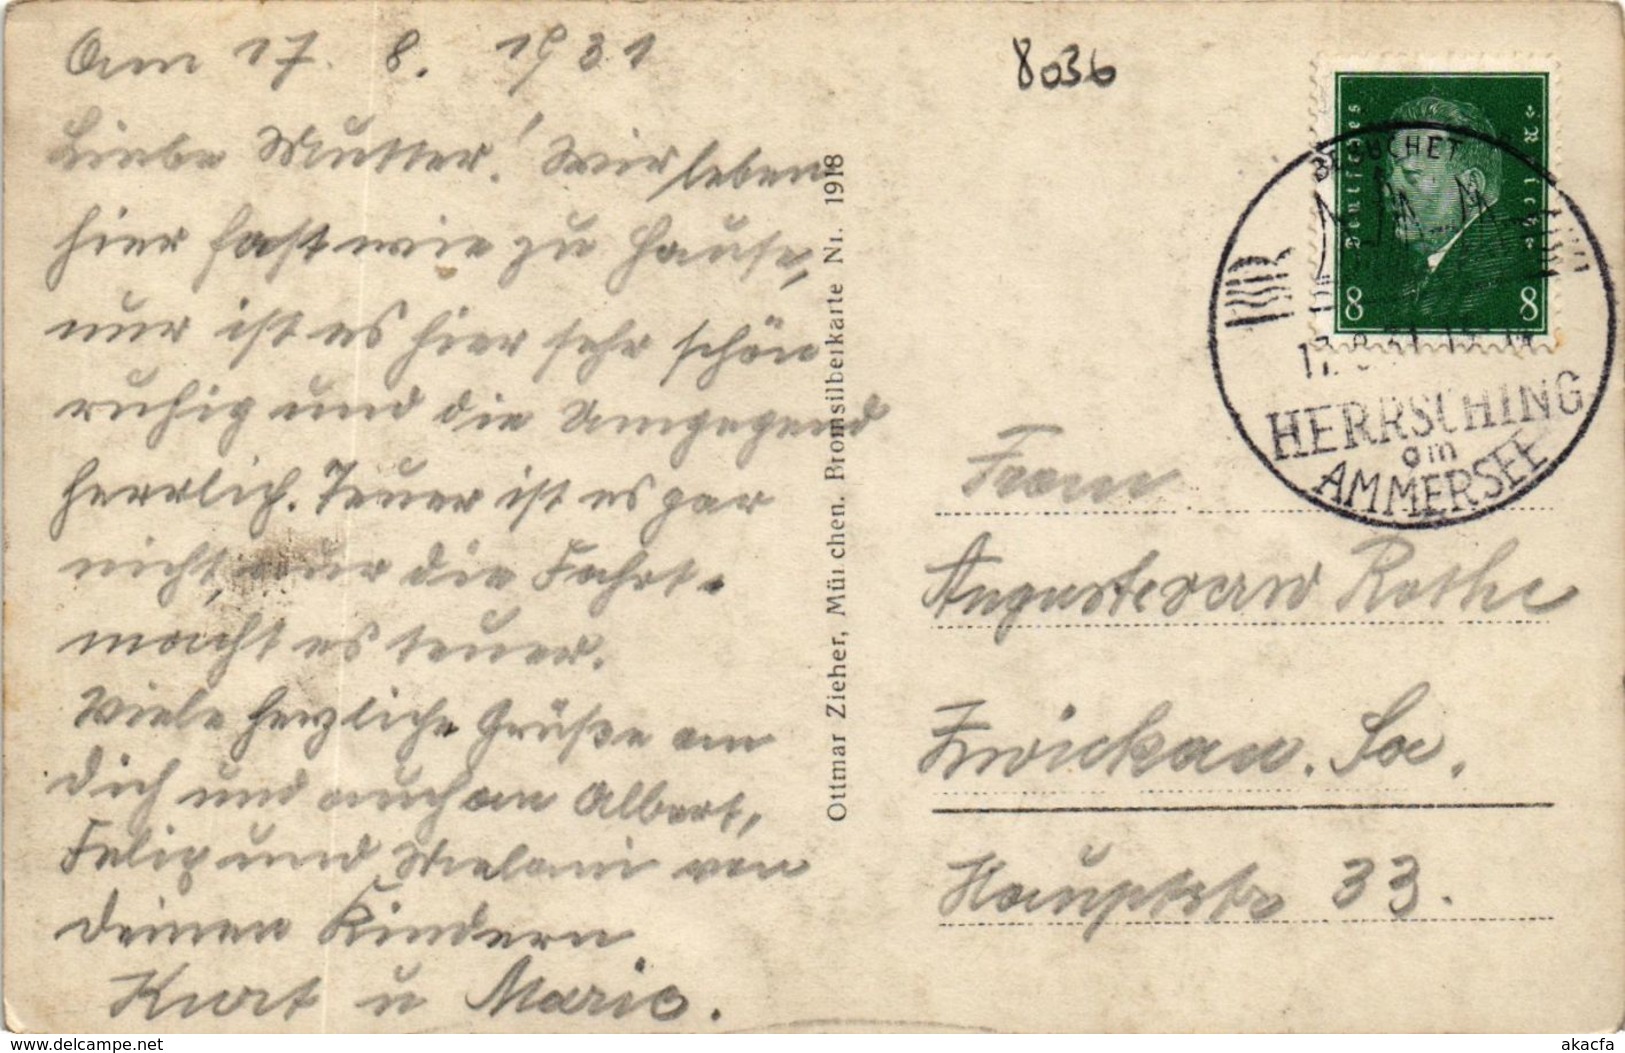 Am 17. 8. 1931
Liebe Mutter! Wir leben
hier fast wie zu Hause,
nur ist es hier sehr schön
ruhig und die Umgegend
herrlich. Teuer ist es gar
nicht, nur die Fahrt
macht es teuer.
Viele herzliche Grüße an
Dich und auch an Albert,
Felix und Melani von
Deinen Kindern
Kurt u Marie.
Ottmar Zieher, München. Bromsilberkarte Nr. 1918
8036
Deutsches Reich
8 8
BESUCHET
17.8.31
HERRSCHING
am
AMMERSEE
Frau
Auguste verw Rothe
Zwickau. Sa.
Hauptstr 33.
delcampe.net
akacfa